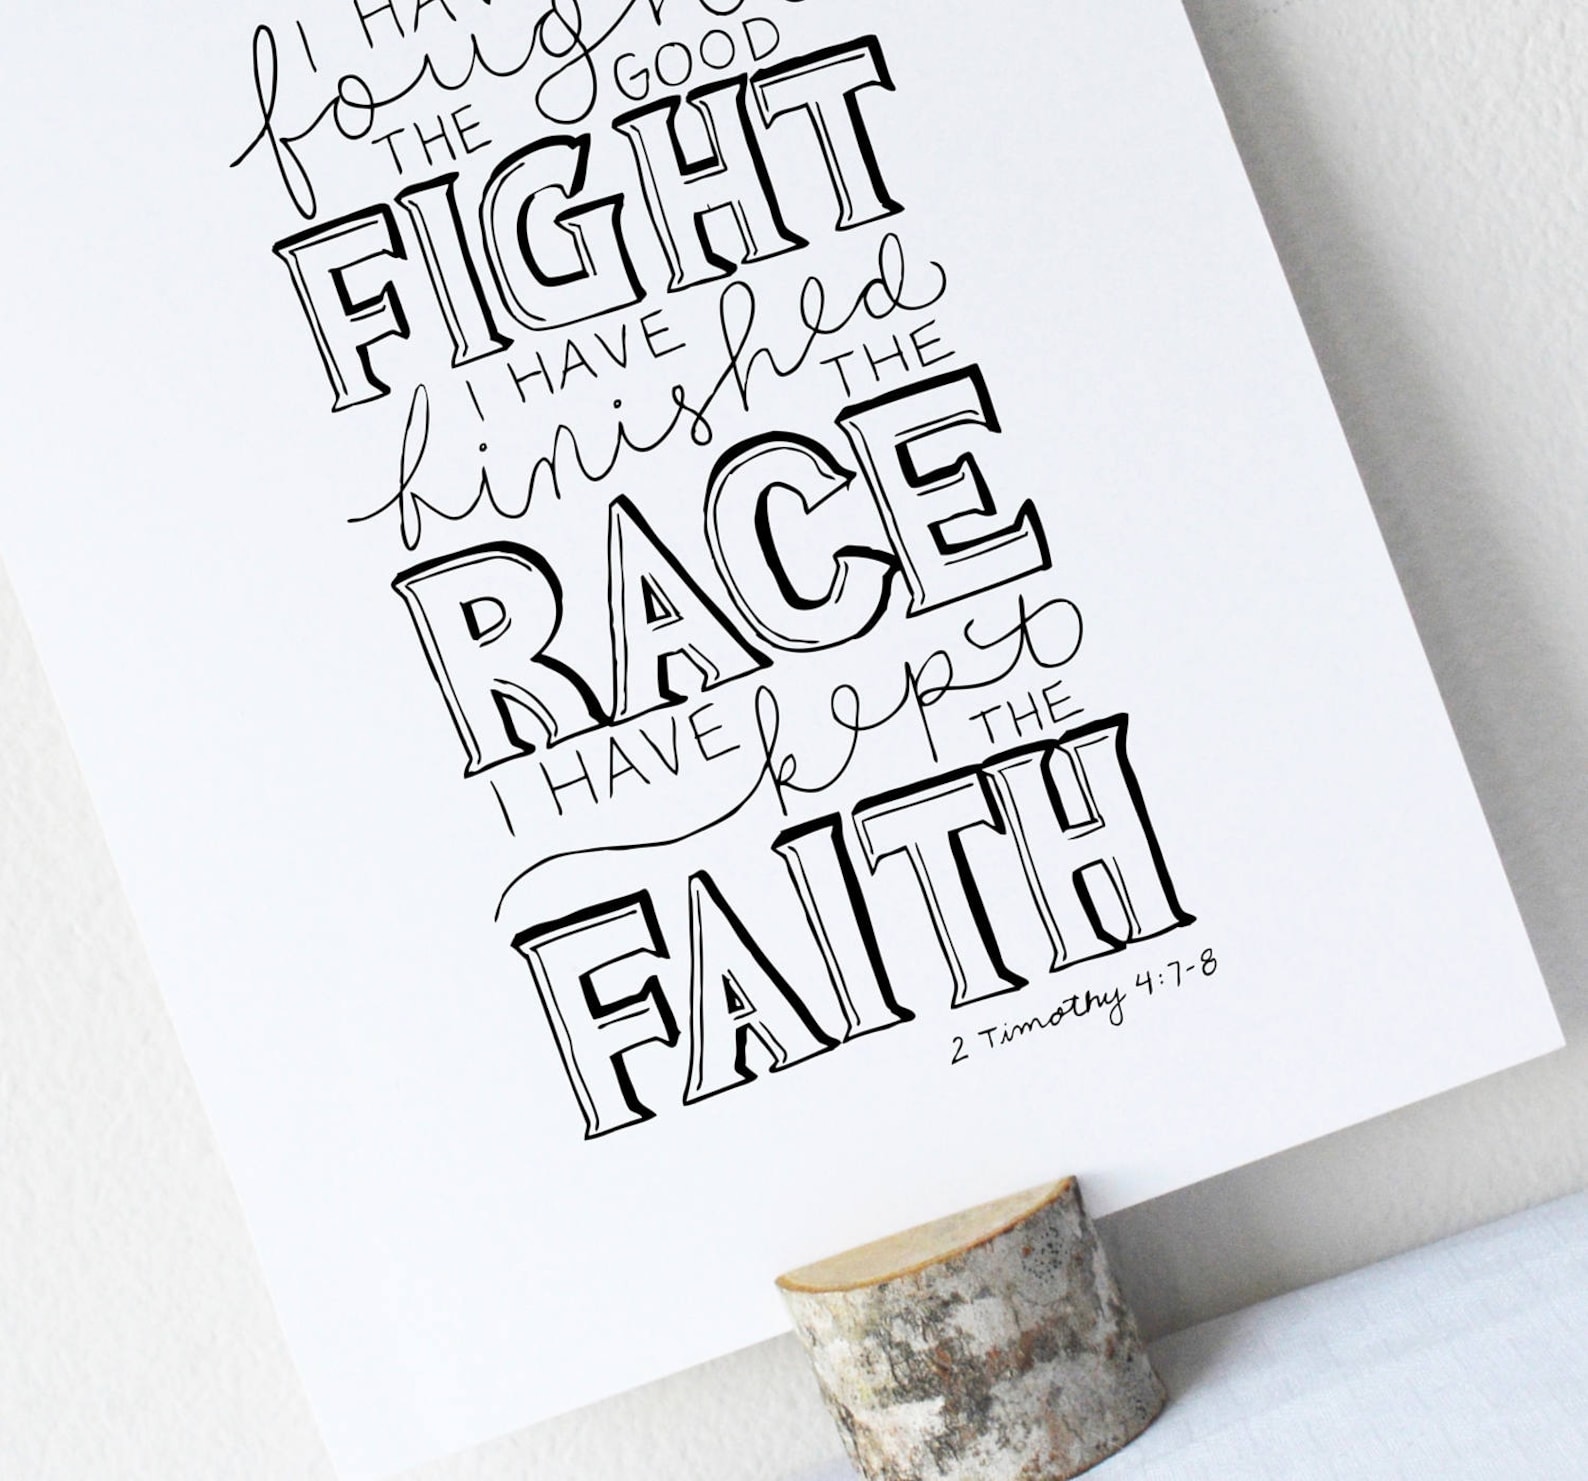 I HAVE
fought
THE GOOD
FIGHT
I HAVE
finished
THE
RACE
I HAVE kept
THE
FAITH
2 Timothy 4:7-8